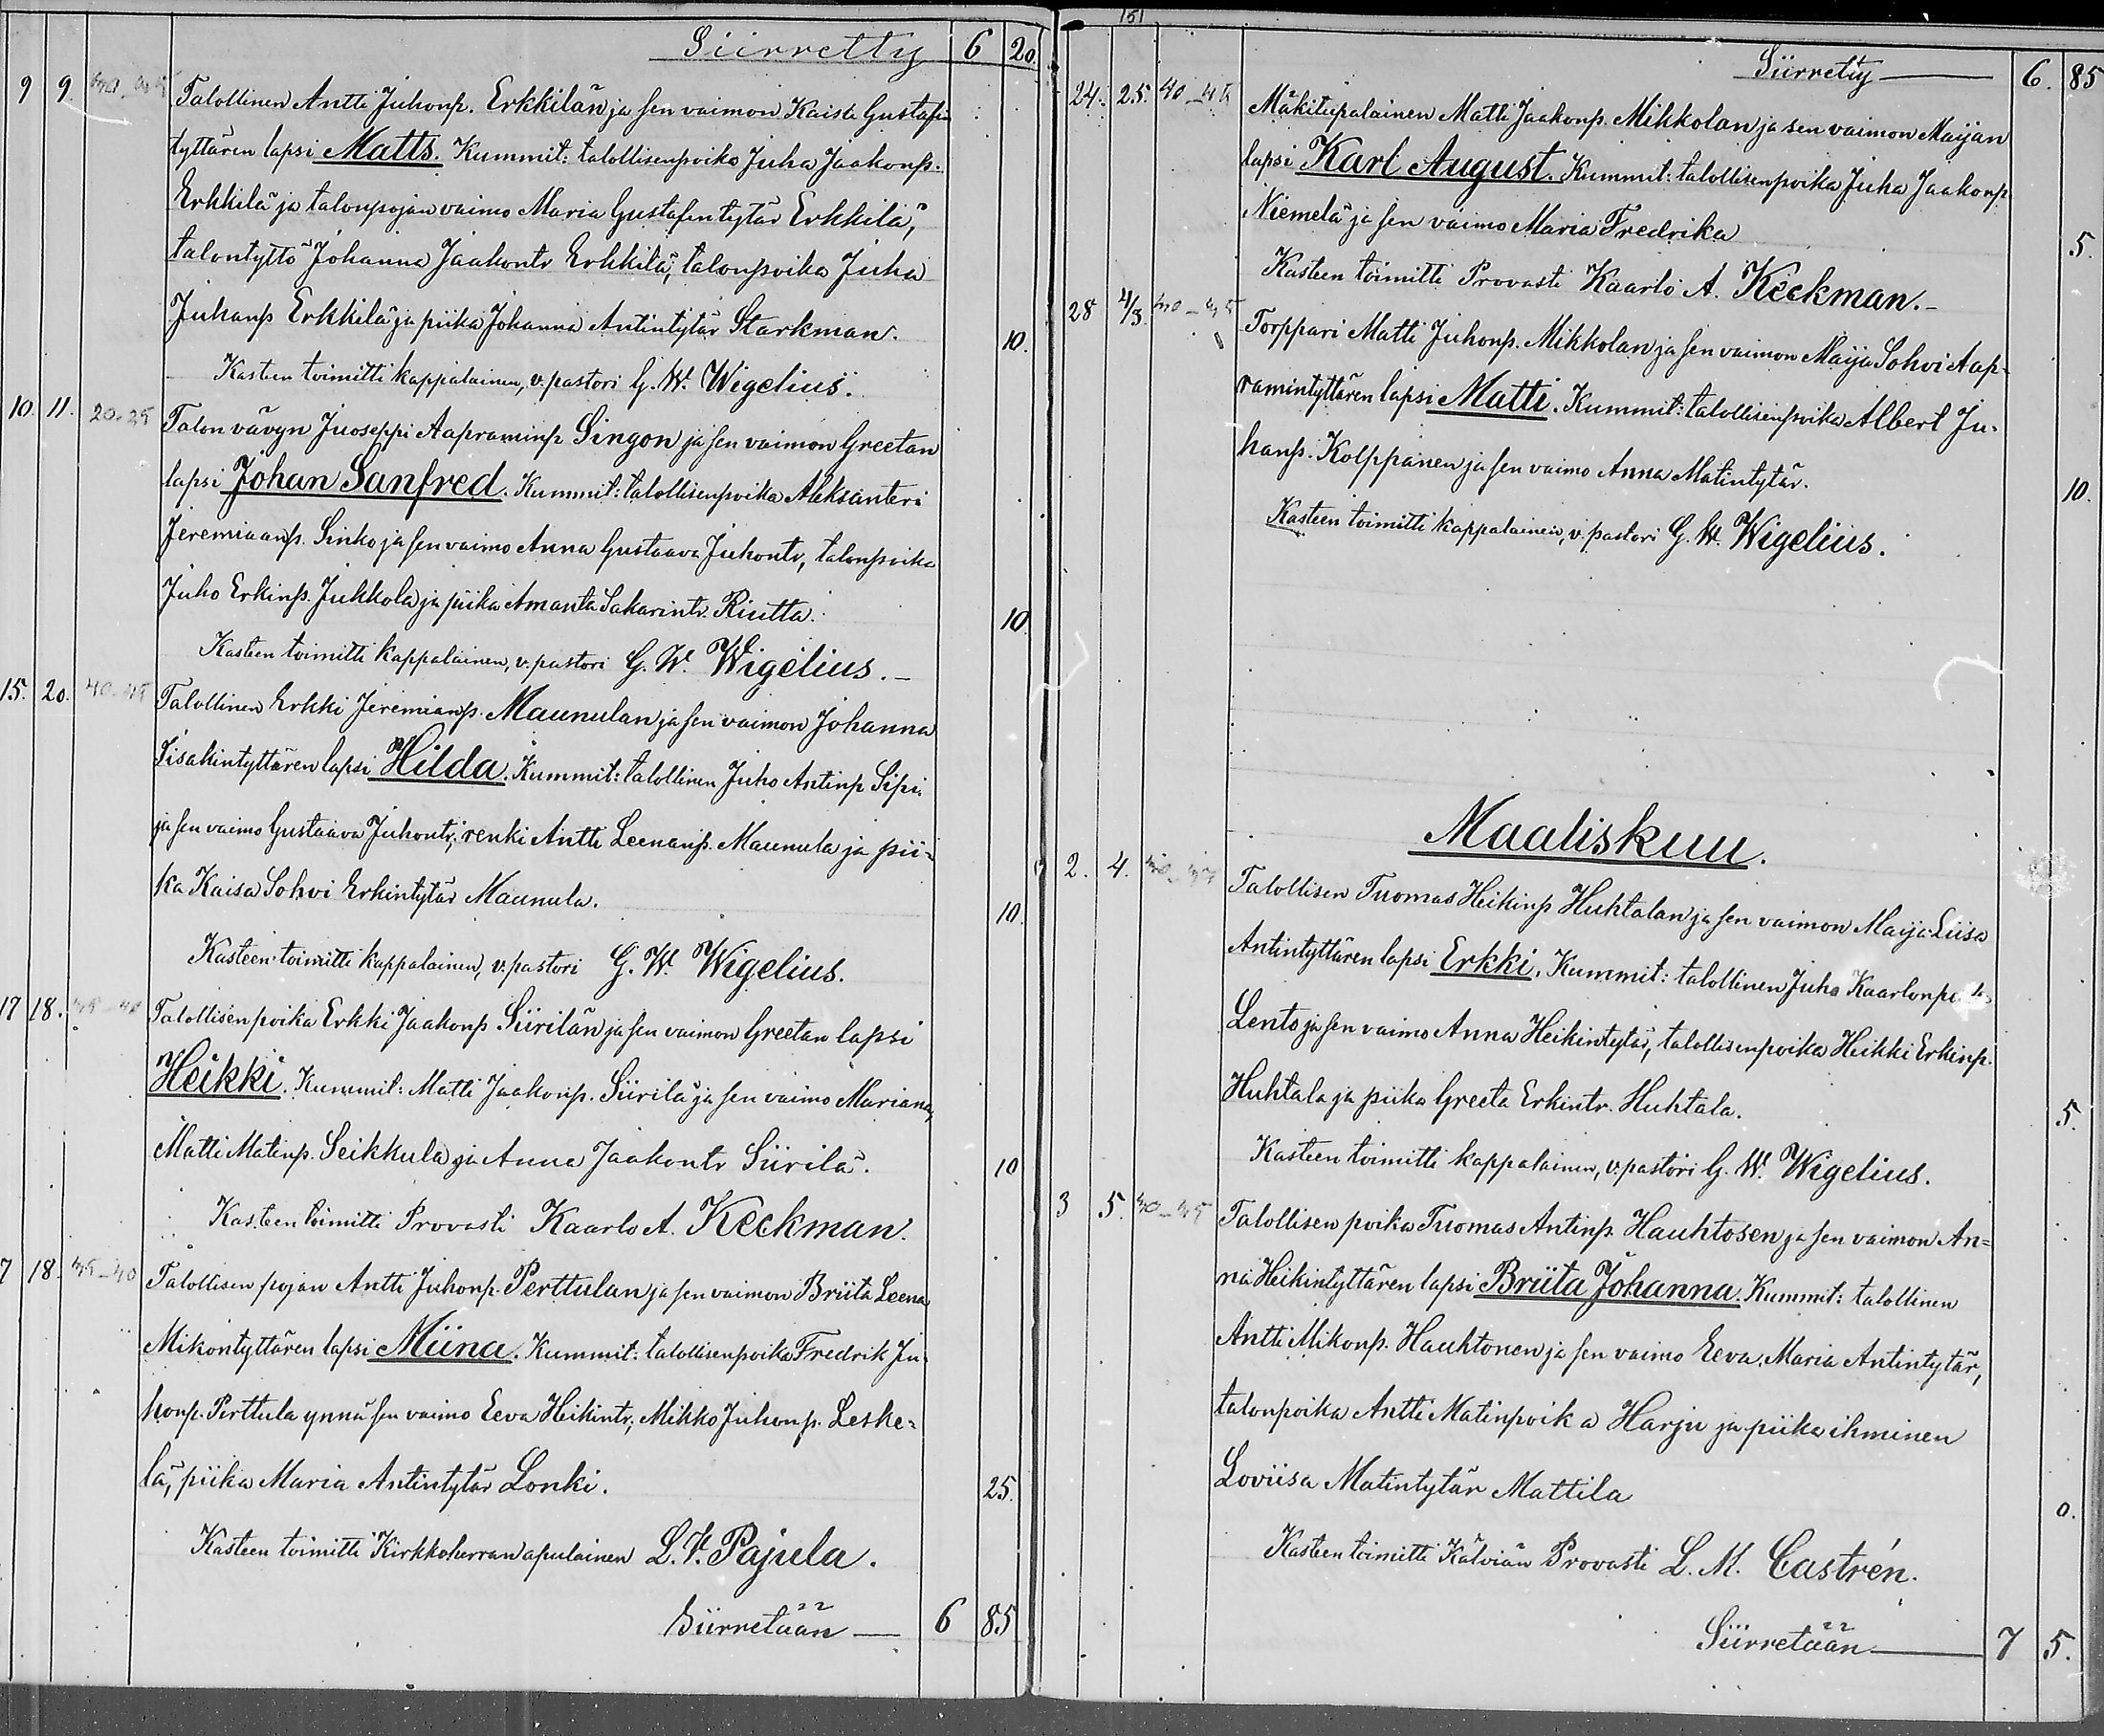 Siirretty 6 20.
9 9. 40-45 Talollinen Antti Juhonp. Erkkilän ja sen vaimon Kaisa Gustafin
tyttären lapsi Matts. Kummit: talollisenpoika Juha Jaakonp.
Erkkilä ja talonpojan vaimo Maria Gustafintytär Erkkilä,
talontyttö Johanna Jaakontr Erkkilä, talonpoika Juha
Juhanp Erkkilä ja piika Johanna Antintytär Starkman. 10.
Kasteen toimitti kappalainen, v. pastori G. W. Wigelius.
10. 11. 20-25 Talon vävyn Juoseppi Aapraminp Singon ja sen vaimon Greetan
lapsi Johan Sanfred. Kummit: talollisenpoika Aleksanteri
Jeremiaanp. Sinko ja sen vaimo Anna Gustaava Juhontr, talonpoika
Juho Erkinp. Jukkola ja piika Amanta Sakarintr. Riutta. 10.
Kasteen toimitti kappalainen, v. pastori G. W. Wigelius.-
15. 20. 40-45 Talollinen Erkki Jeremianp. Maunulan ja sen vaimon Johanna
Iisakintyttären lapsi Hilda. Kummit: talollinen Juho Antinp Sipi
ja sen vaimo Gustaava Juhontr, renki Antti Leenanp. Maunula ja pii-
ka Kaisa Sohvi Erkintytär Maunula. 10.
Kasteen toimitti kappalainen, v. pastori G. W. Wigelius.
17 18. 35-40 Talollisenpoika Erkki Jaakonp Siirilän ja sen vaimon Greetan lapsi
Heikki. Kummit: Matti Jaakonp. Siirilä ja sen vaimo Mariana,
Matti Matinp. Seikkula ja Anna Jaakontr Siirilä. 10
Kasteen toimitti Provasti Kaarlo A. Keckman.
7 18. 35-40 Talollisen pojan Antti Juhonp. Perttulan ja sen vaimon Briita Leena
Mikontyttären lapsi Miina. Kummit: talollisenpoika Fredrik Ju-
honp. Perttula ynnä sen vaimo Eeva Heikintr, Mikko Juhonp. Leske-
lä, piika Maria Antintytär Lonki. 25.
Kasteen toimitti Kirkkoherran apulainen L. V. Pajula.
Siirretään — 6 85
151
Siirretty — 6. 85
24. 25. 40-45 Mäkitupalainen Matti Jaakonp. Mikkolan ja sen vaimon Maijan
lapsi Karl August. Kummit: talollisenpoika Juha Jaakonp
Niemelä ja sen vaimo Maria Fredrika 5.
Kasteen toimitti Provasti Kaarlo A. Keckman.-
28 4/3 40-45 Torppari Matti Juhonp. Mikkolan ja sen vaimon Maija Sohvi Aap-
ramintyttären lapsi Matti. Kummit: talollisenpoika Albert Ju-
hanp. Kolppanen ja sen vaimo Anna Matintytär. 10.
Kasteen toimitti kappalainen, v. pastori G. W. Wigelius.
Maaliskuu.
2. 4. Talollisen Tuomas Heikinp Huhtalan ja sen vaimon Maija Liisa
Antintyttären lapsi Erkki. Kummit: talollinen Juho Kaarlonp
Lento ja sen vaimo Anna Heikintytär, talollisenpoika Heikki Erkinp.
Huhtala ja piika Greeta Erkintr. Huhtala. 5.
Kasteen toimitti kappalainen, v. pastori G. W. Wigelius.
3 5. 40-45 Talollisen poika Tuomas Antinp. Hauhtosen ja sen vaimon An-
na Heikintyttären lapsi Briita Johanna. Kummit: talollinen
Antti Mikonp. Hauhtonen ja sen vaimo Eeva Maria Antintytär,
talonpoika Antti Matinpoika Harju ja piika ihminen
Loviisa Matintytär Mattila 0.
Kasteen toimitti Kälviän Provasti L. M. Castrén.
Siirretään — 7 5.